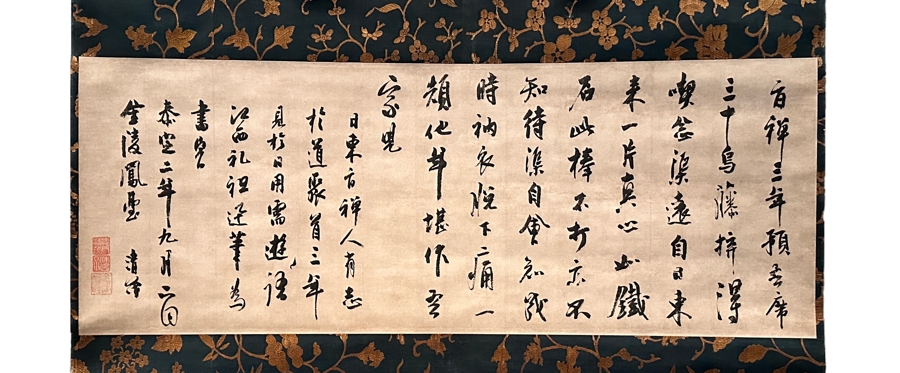 旨禪三年預吾席
三十烏藤擗得
喫念渠遠自日東
来一片真心如鐵
石此棒不打亦不
知待渠自會知我
時衲衣脱下痛一
頓他年堪作吾
家児
日東旨禪人有志
於道聚首三年
見於日用需遊語
江西礼祖迅筆為
書
泰定二年九月二日
金陵鳳臺 清茂